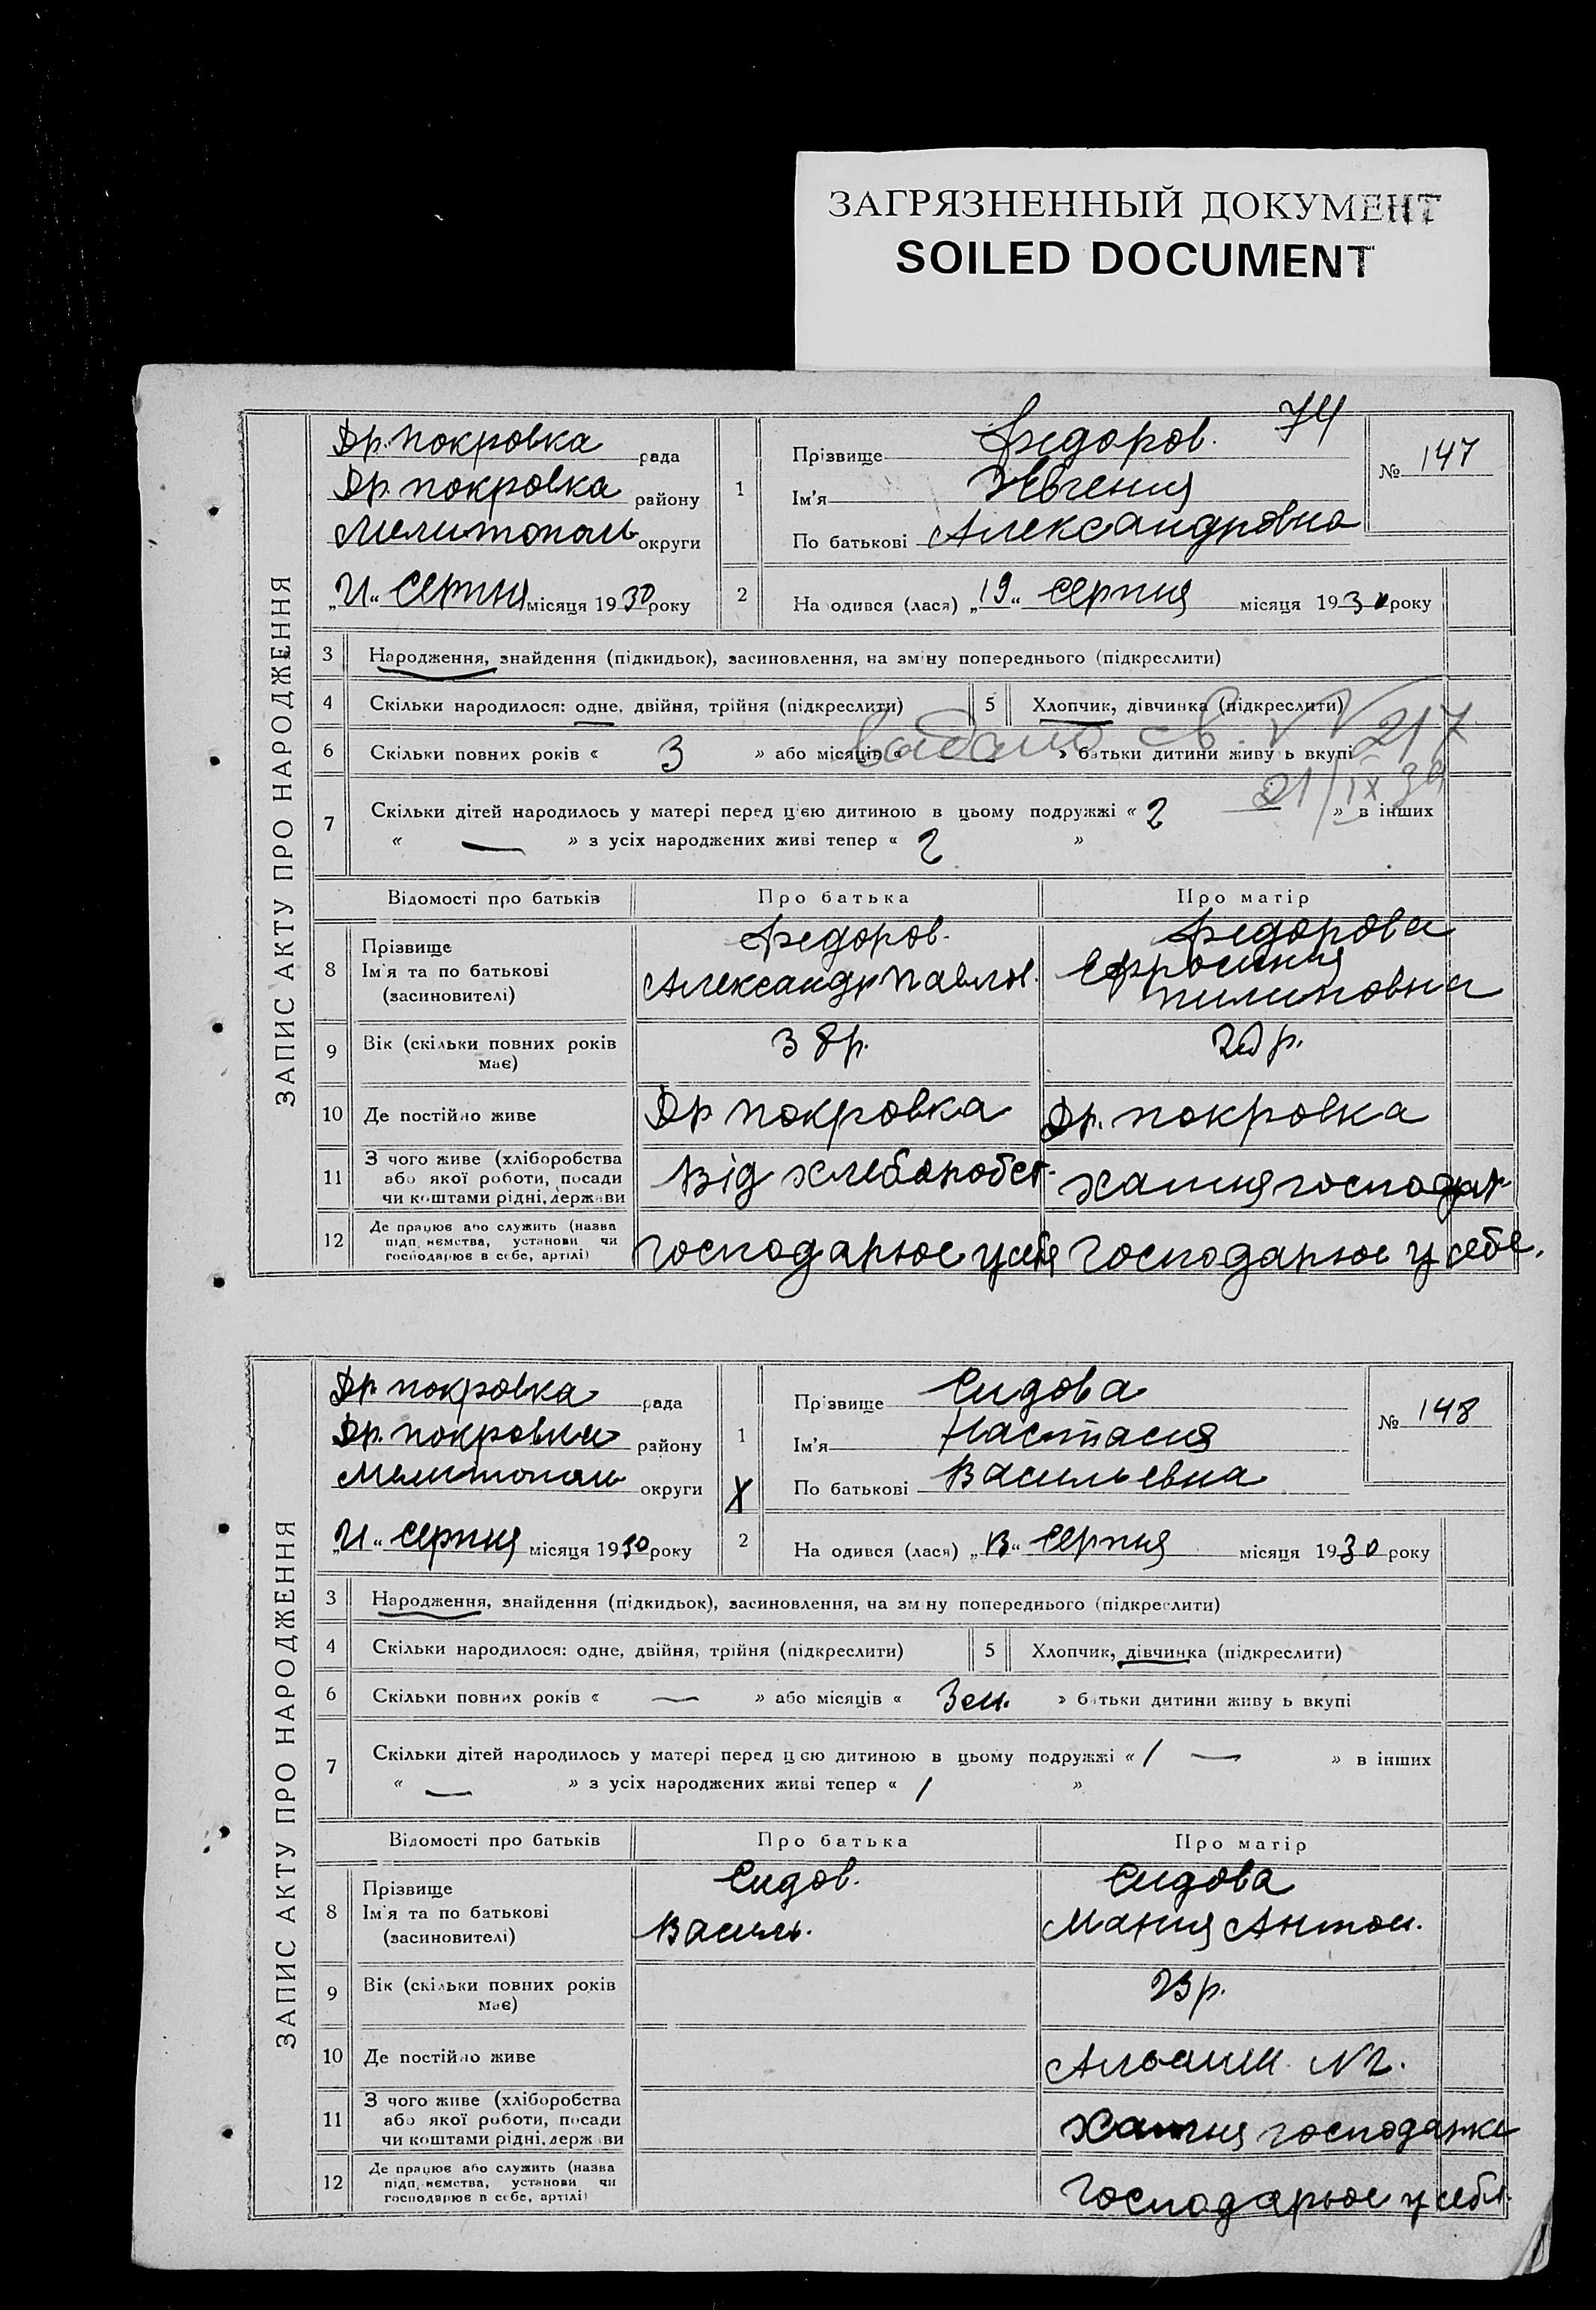 ЗАГРЯЗНЕННЫЙ ДОКУМЕНТ
SOILED DOCUMENT
74
ЗАПИС АКТУ ПРО НАРОДЖЕННЯ
Др. Покровка рада
Др. Покровка району
Мелитополь округи
„21“ серпня місяця 1930 року
1
Прізвище Федоров.
Ім'я Евгения
По батькові Александровна
№ 147
2
На одився (лася) „19“ серпня місяця 1930 року
3 Народження, знайдення (підкидьок), засиновлення, на зміну попереднього (підкреслити)
4 Скільки народилося: одне, двійня, трійня (підкреслити) 5 Хлопчик, дівчинка (підкреслити)
217
6 Скільки повних років « 3 » або місяців « » батьки дитини живу ь вкупі
21/IX 30
7 Скільки дітей народилось у матері перед цією дитиною в цьому подружжі « 2 — » в інших
« — » з усіх народжених живі тепер « 2 »
Відомості про батьків Про батька Про матір
8 Прізвище Ім'я та по батькові (засиновителі)
Федоров. Александр Павлов.
Федорова Ефросиния Пилиповна
9 Вік (скільки повних років має) 38 р. р.
10 Де постійно живе Др Покровка Др. Покровка
11 З чого живе (хліборобства або якої роботи, посади чи коштами рідні, держави
Від хлеборобст. хатня господар.
12 Де працює або служить (назва підп иємства, установи чи господарює в себе, артілі)
Господарює у себя Господарює у себе.
ЗАПИС АКТУ ПРО НАРОДЖЕННЯ
Др. Покровка рада
Др. Покровка району
Мелитополь округи
„21“ серпня місяця 1930 року
1
X
Прізвище Сидова
Ім'я Настасия
По батькові Васильевна
№ 148
2
На одився (лася) „13“ серпня місяця 1930 року
3 Народження, знайдення (підкидьок), засиновлення, на зміну попереднього (підкреслити)
4 Скільки народилося: одне, двійня, трійня (підкреслити) 5 Хлопчик, дівчинка (підкреслити)
6 Скільки повних років « — » або місяців « 3 м. » батьки дитини живу ь вкупі
7 Скільки дітей народилось у матері перед цією дитиною в цьому подружжі « 1 — » в інших
« — » з усіх народжених живі тепер « 1 »
Відомості про батьків Про батька Про матір
8 Прізвище Ім'я та по батькові (засиновителі)
Сидов. Василь.
Сидова Мария Антон.
9 Вік (скільки повних років має) 23 р.
10 Де постійно живе N 2.
11 З чого живе (хліборобства або якої роботи, посади чи коштами рідні, держ ви
хатня господарка
12 Де працює або служить (назва підп иємства, установи чи господарює в себе, артілі)
Господарює у себя.